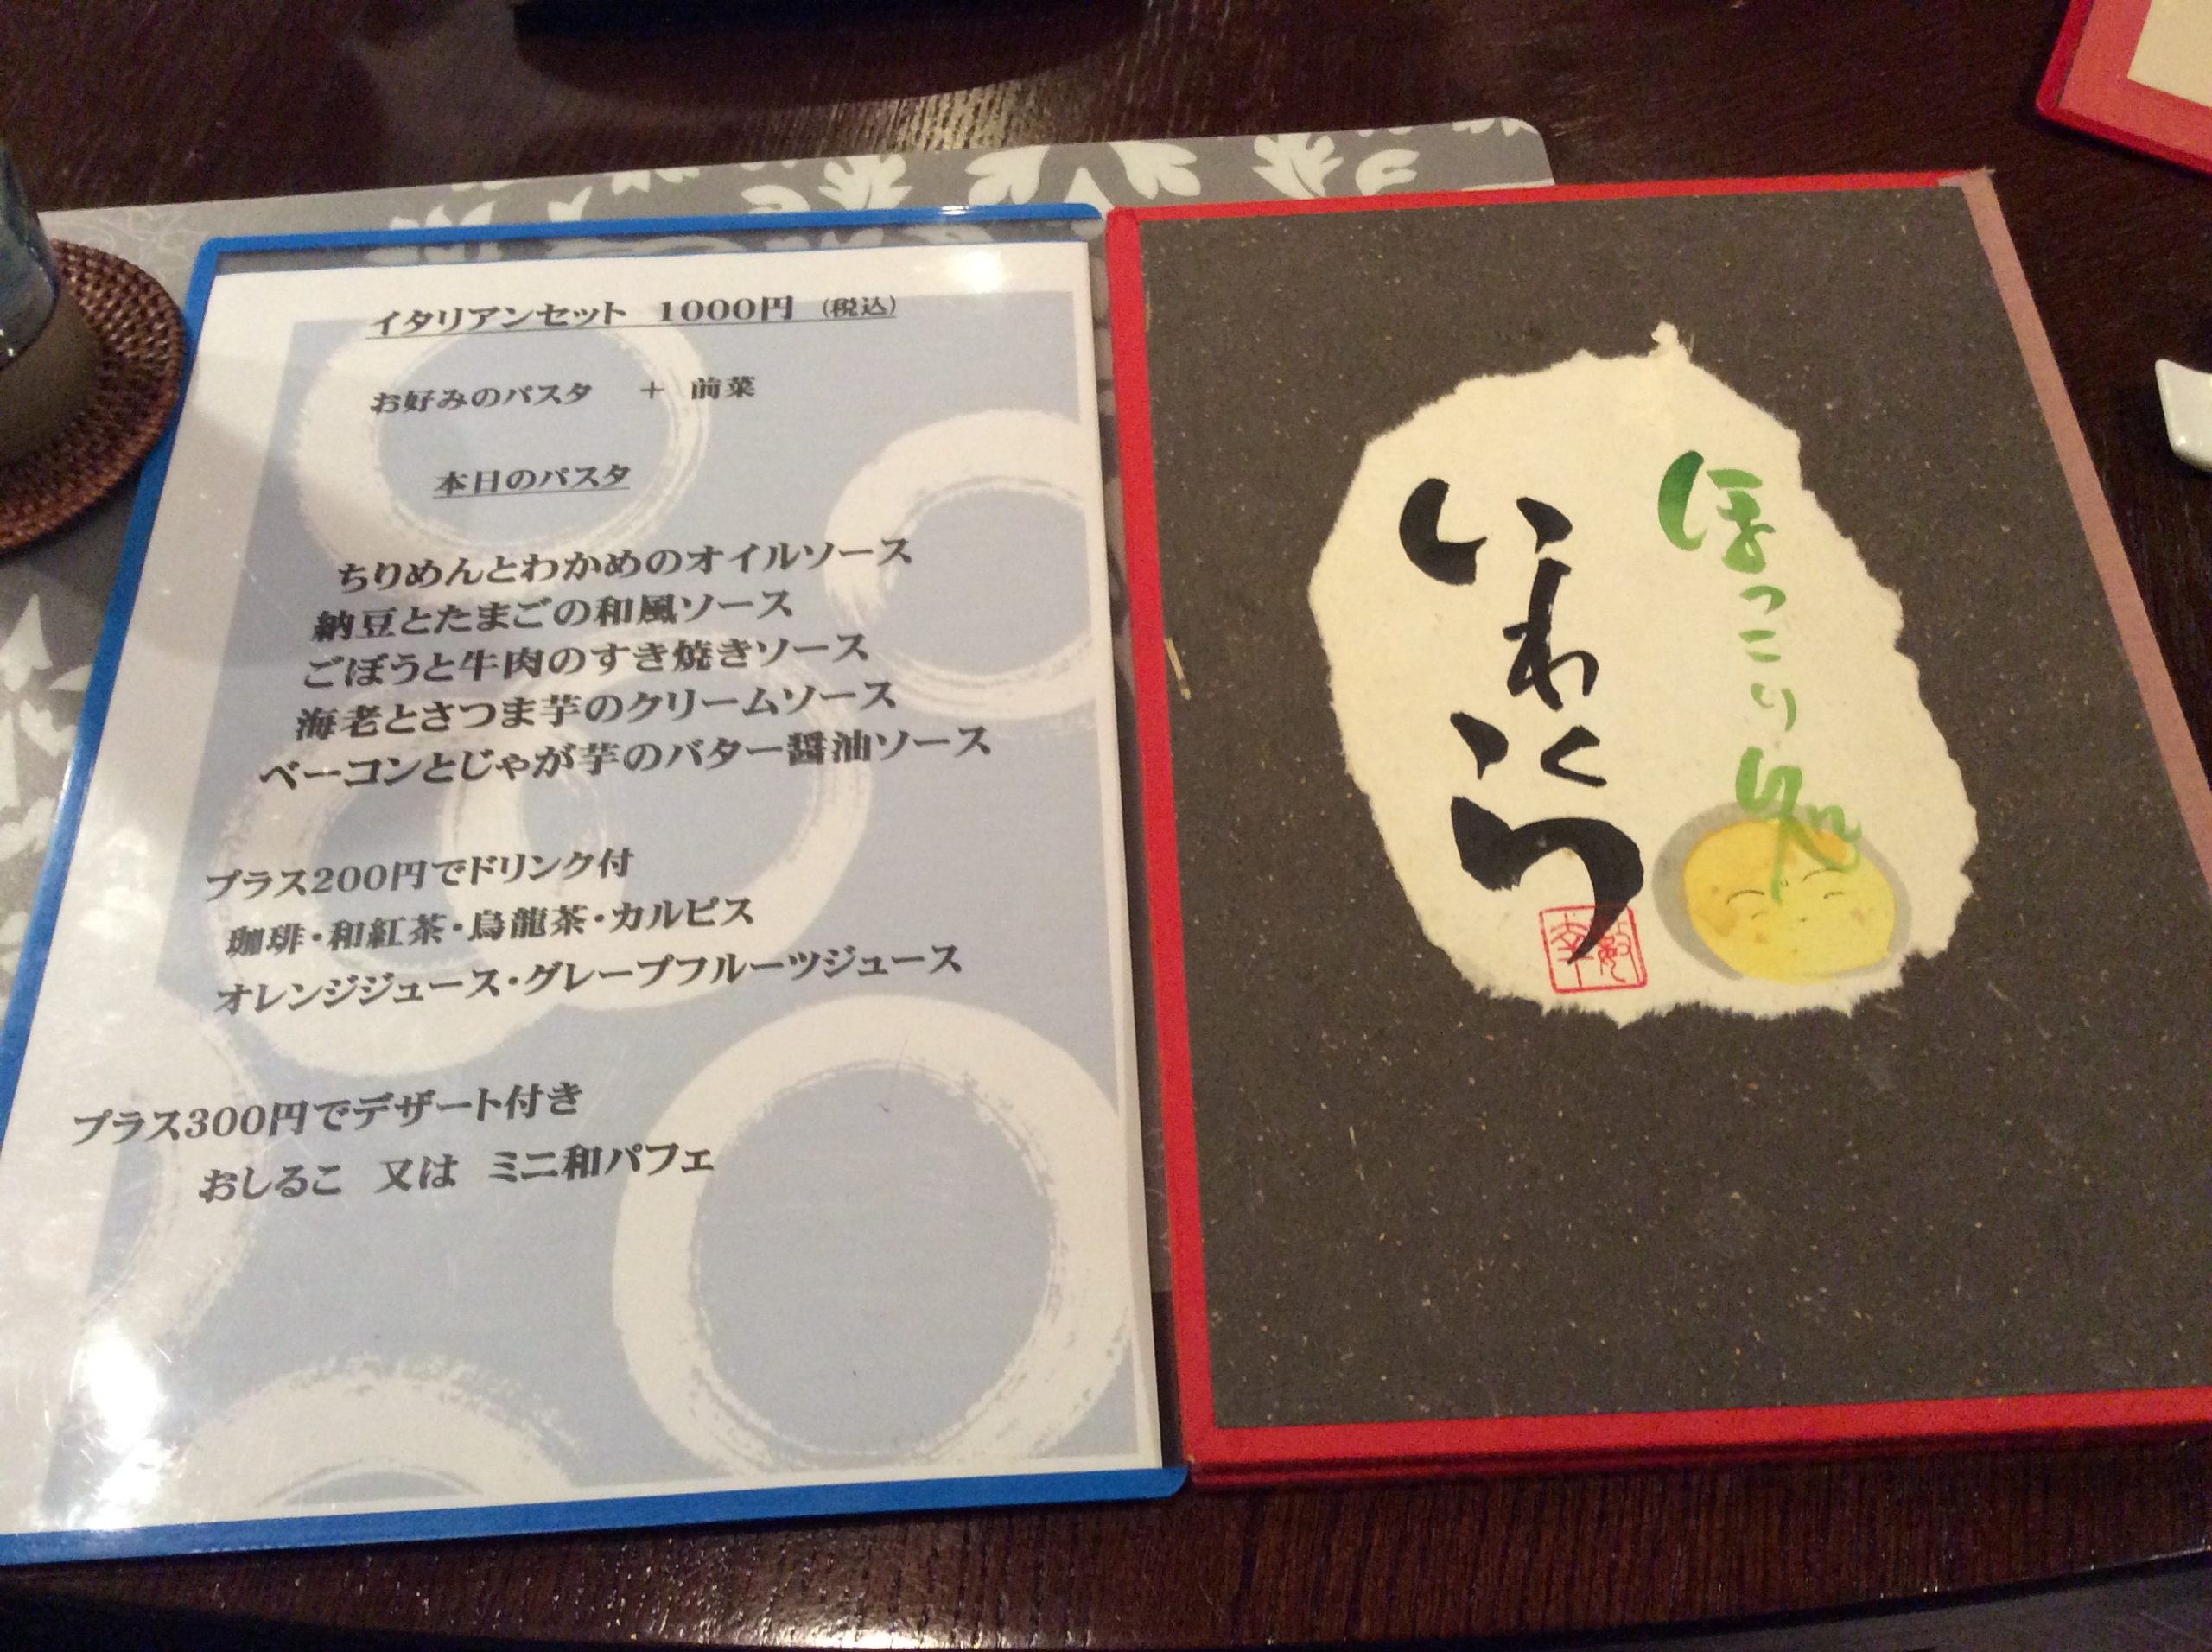 イタリアンセット 1000円 (税込)
お好みのパスタ + 前菜
本日のパスタ
ちりめんとわかめのオイルソース
納豆とたまごの和風ソース
ごぼうと牛肉のすき焼きソース
海老とさつま芋のクリームソース
ベーコンとじゃが芋のバター醤油ソース
プラス200円でドリンク付
珈琲・和紅茶・烏龍茶・カルピス
オレンジジュース・グレープフルーツジュース
プラス300円でデザート付き
おしるこ 又は ミニ和パフェ
ほっこり処
いわくら